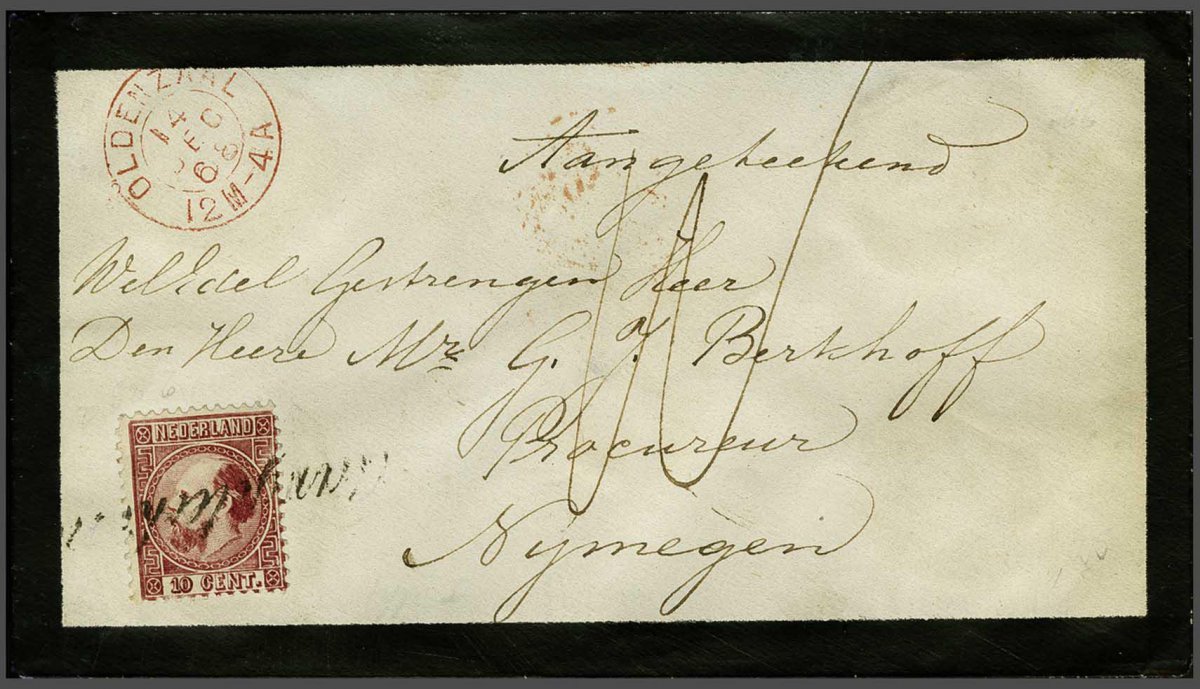 OLDENZAAL
14
DEC
68
12M-4A
Aangeteekend
WelEdel Gestrengen Heer
Den Heere Mr G. J. Berkhoff
Procureur
Nymegen
NEDERLAND
10 CENT.